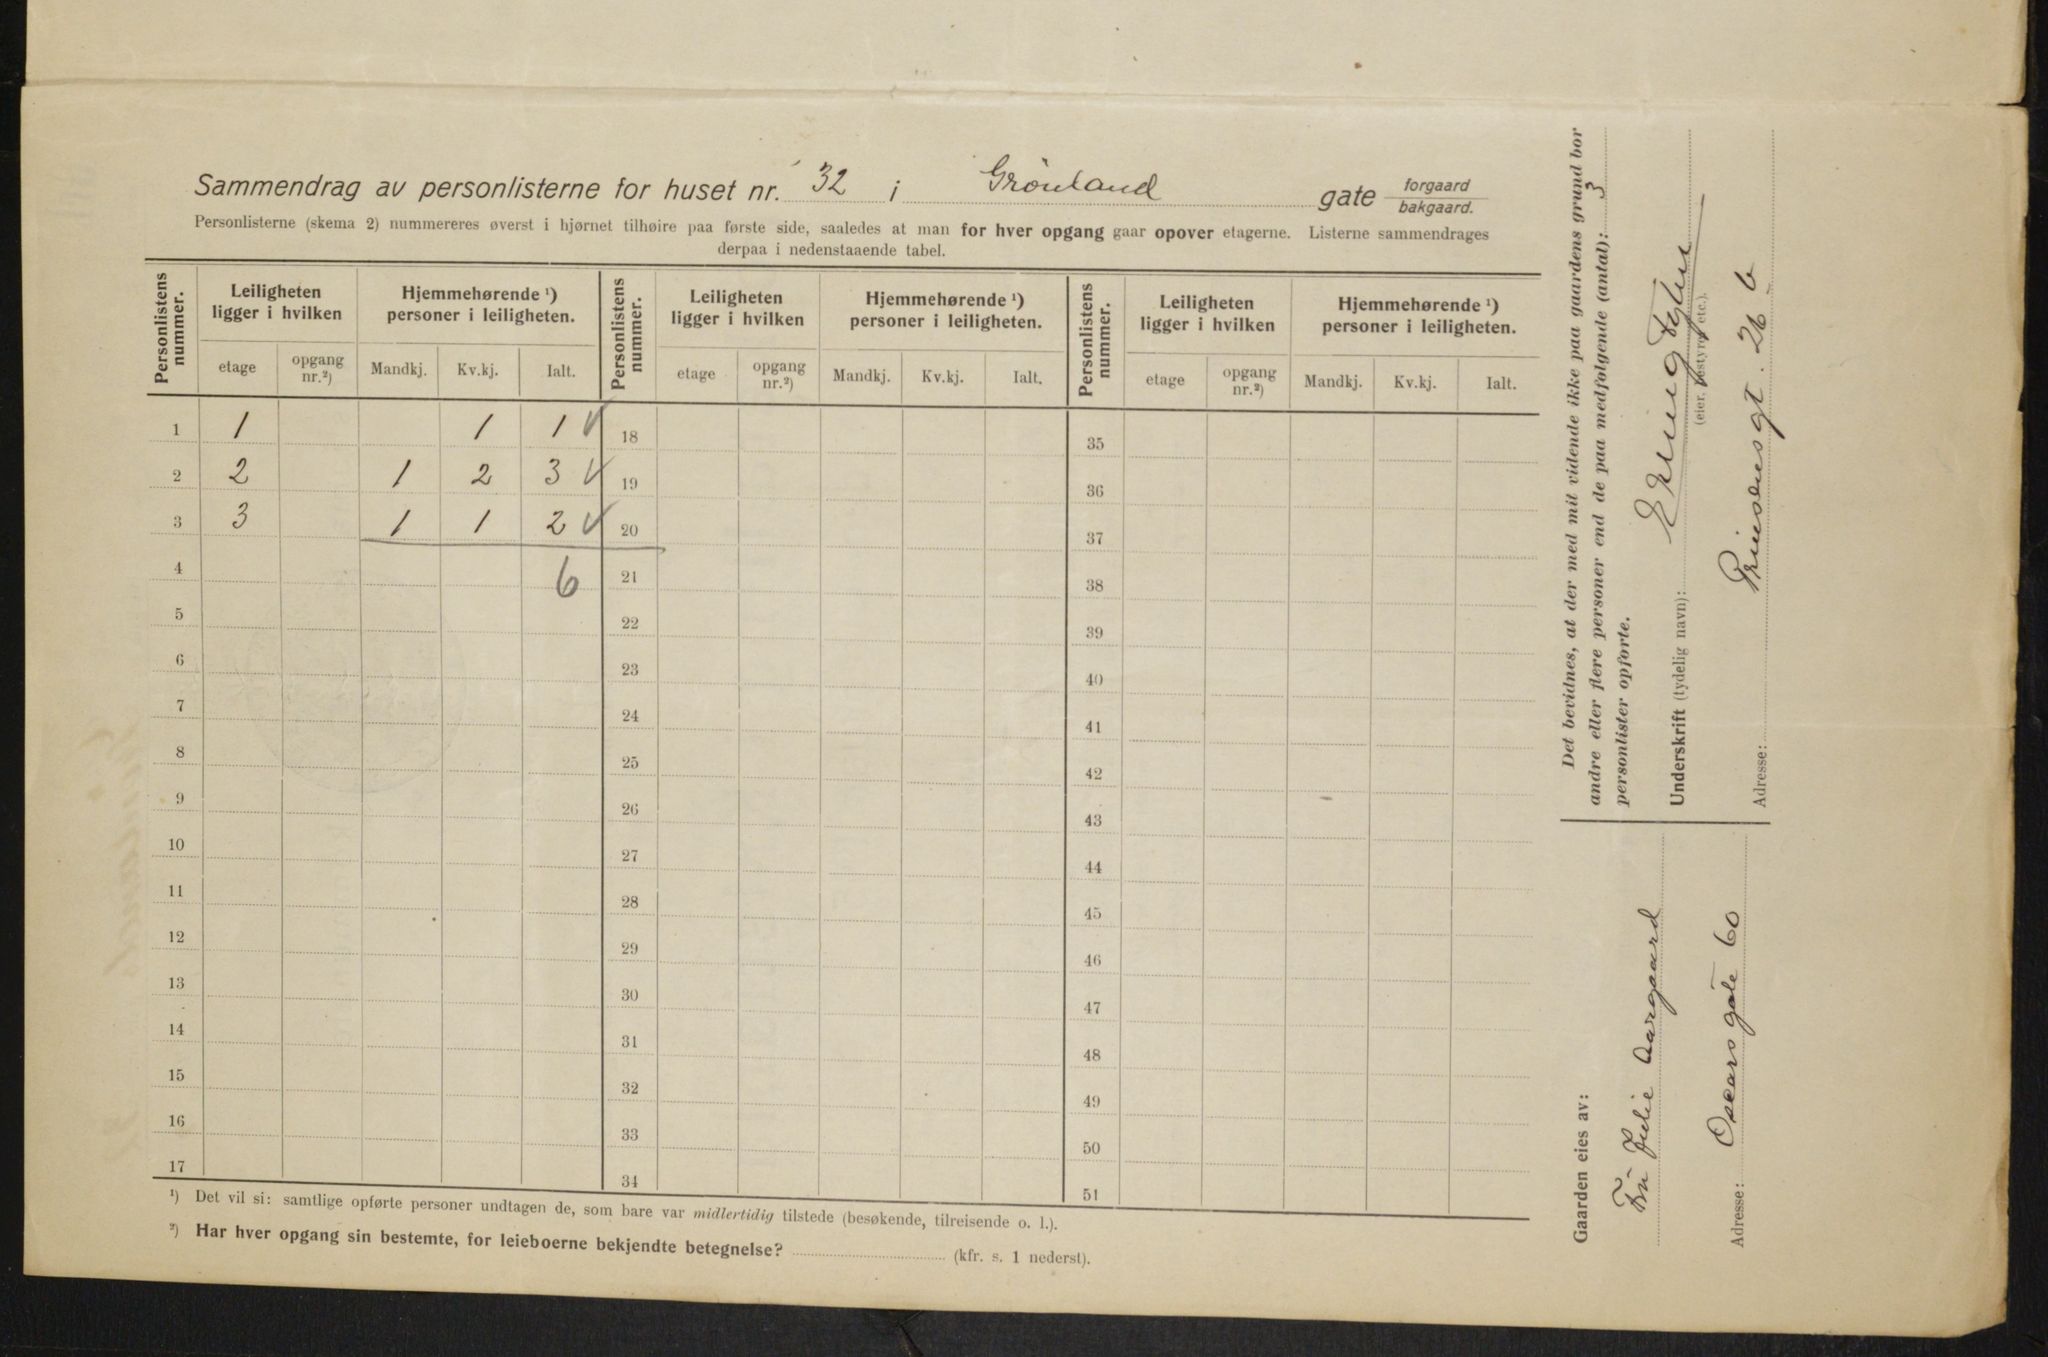 Sammendrag av personlisterne for huset nr. 32 i Grönland gate forgaard bakgaard.
Personlisterne (skema 2) nummereres øverst i hjørnet tilhøire paa første side, saaledes at man for hver opgang gaar opover etagerne. Listerne sammendrages
derpaa i nedenstaaende tabel.
Personlistens nummer. Leiligheten ligger i hvilken Hjemmehørende ¹) personer i leiligheten. Personlistens nummer. Leiligheten ligger i hvilken Hjemmehørende ¹) personer i leiligheten. Personlistens nummer. Leiligheten ligger i hvilken Hjemmehørende ¹) personer i leiligheten.
etage opgang nr.²) Mandkj. Kv.kj. Ialt. etage opgang nr.²) Mandkj. Kv.kj. Ialt. etage opgang nr.²) Mandkj. Kv.kj. Ialt.
1 1 1 1 √ 18 35
2 2 1 2 3 √ 19 36
3 3 1 1 2 √ 20 37
4 6 21 38
5 22 39
6 23 40
7 24 41
8 25 42
9 26 43
10 27 44
11 28 45
12 29 46
13 30 47
14 31 48
15 32 49
16 33 50
17 34 51
¹) Det vil si: samtlige opførte personer undtagen de, som bare var midlertidig tilstede (besøkende, tilreisende o. l.).
²) Har hver opgang sin bestemte, for leieboerne bekjendte betegnelse? (kfr. s. 1 nederst).
Det bevidnes, at der med mit vidende ikke paa gaardens grund bor
andre eller flere personer end de paa medfølgende (antal): 3
personlister opførte.
Underskrift (tydelig navn):
(eier, bestyrer etc.).
Adresse: Prinsensgt. 26 b
Gaarden eies av:
Fru Julie Aargaard
Adresse: Oscarsgate 60